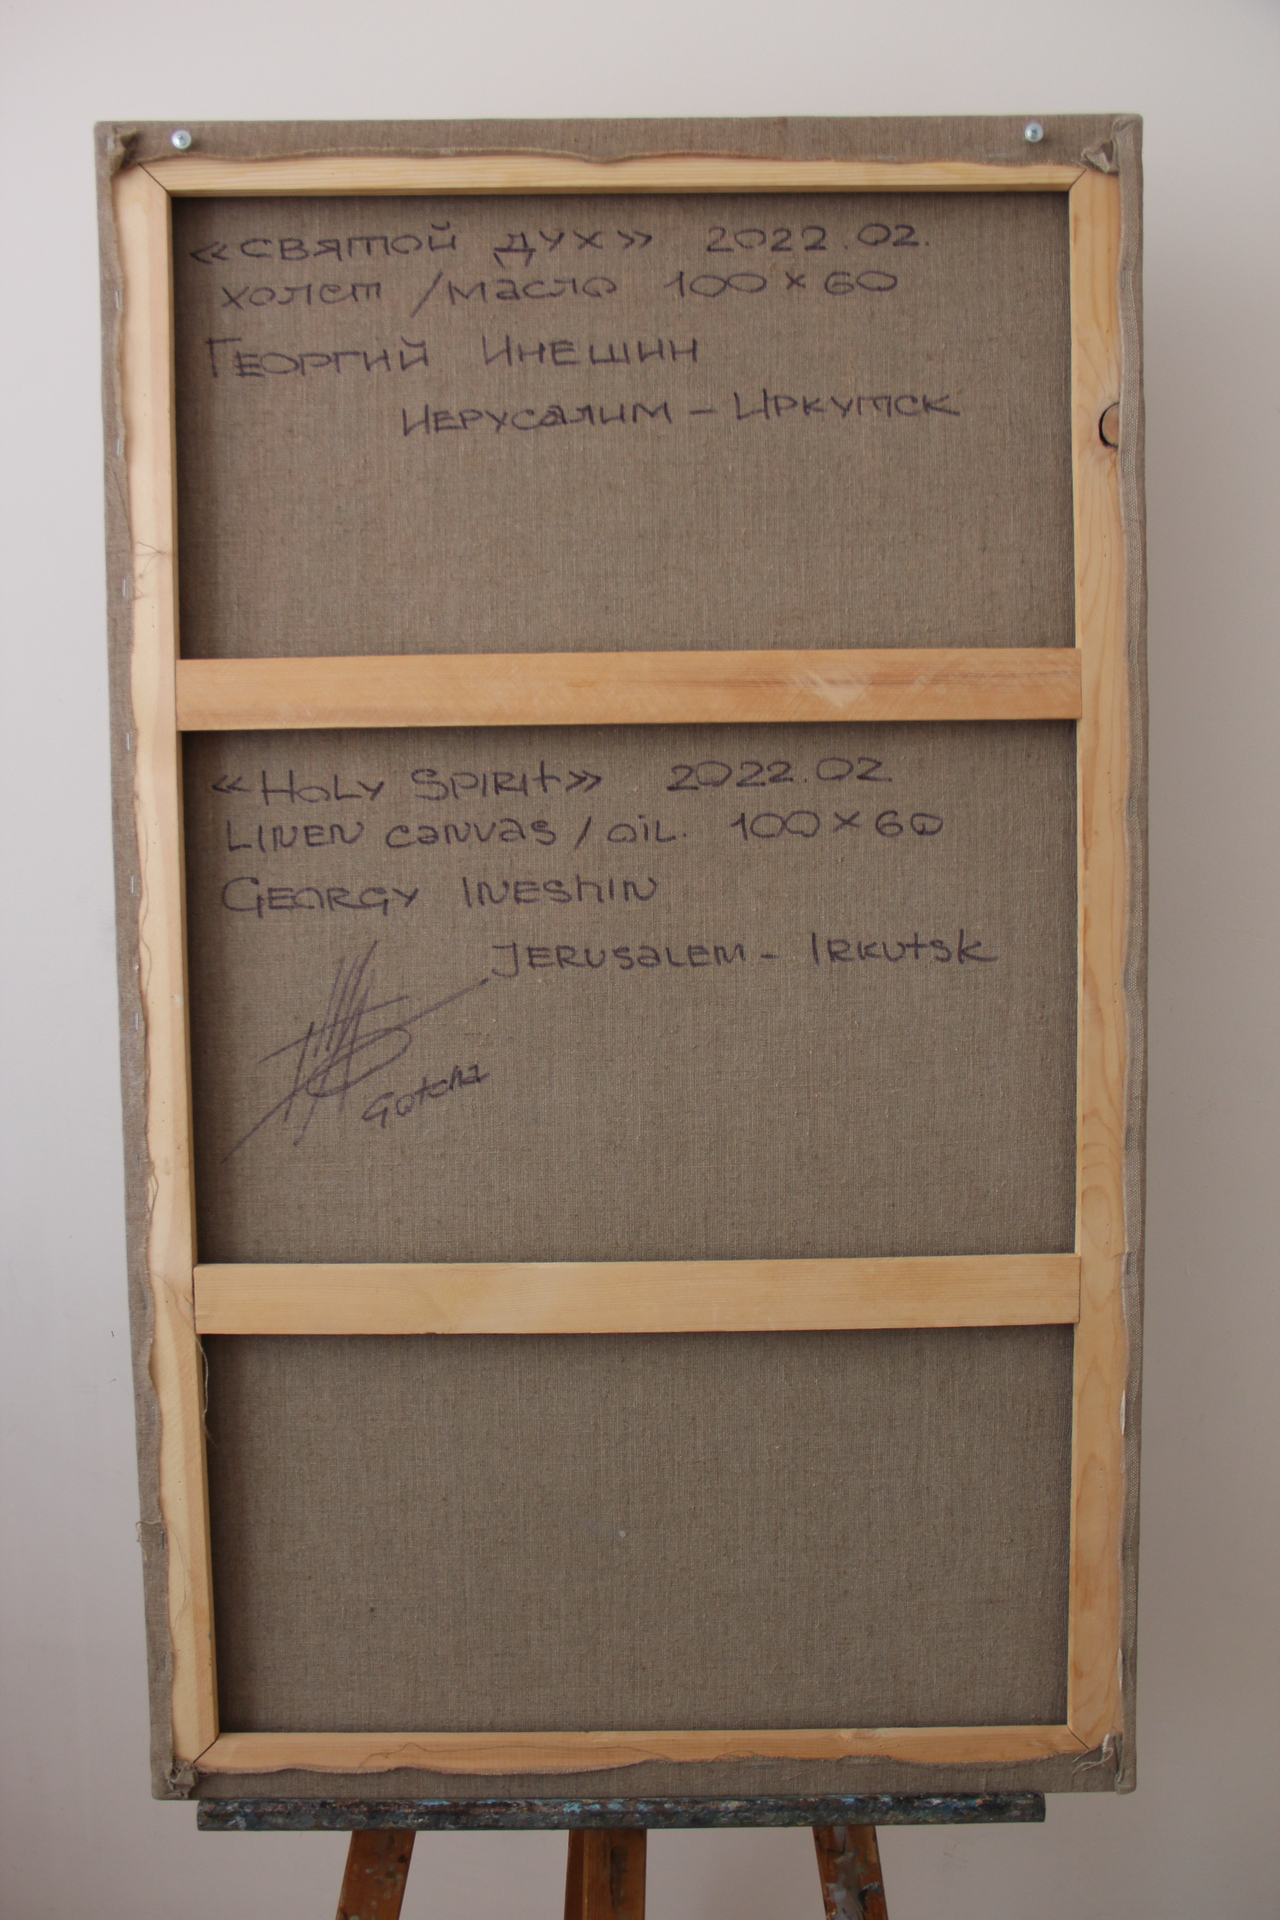 «Святой Дух» 2022.02.
холст / масло 100 × 60
Георгий Инешин
Иерусалим – Иркутск
«Holy Spirit» 2022.02.
Linen canvas / oil. 100 × 60
Georgy Ineshin
Jerusalem – Irkutsk
Gotcha